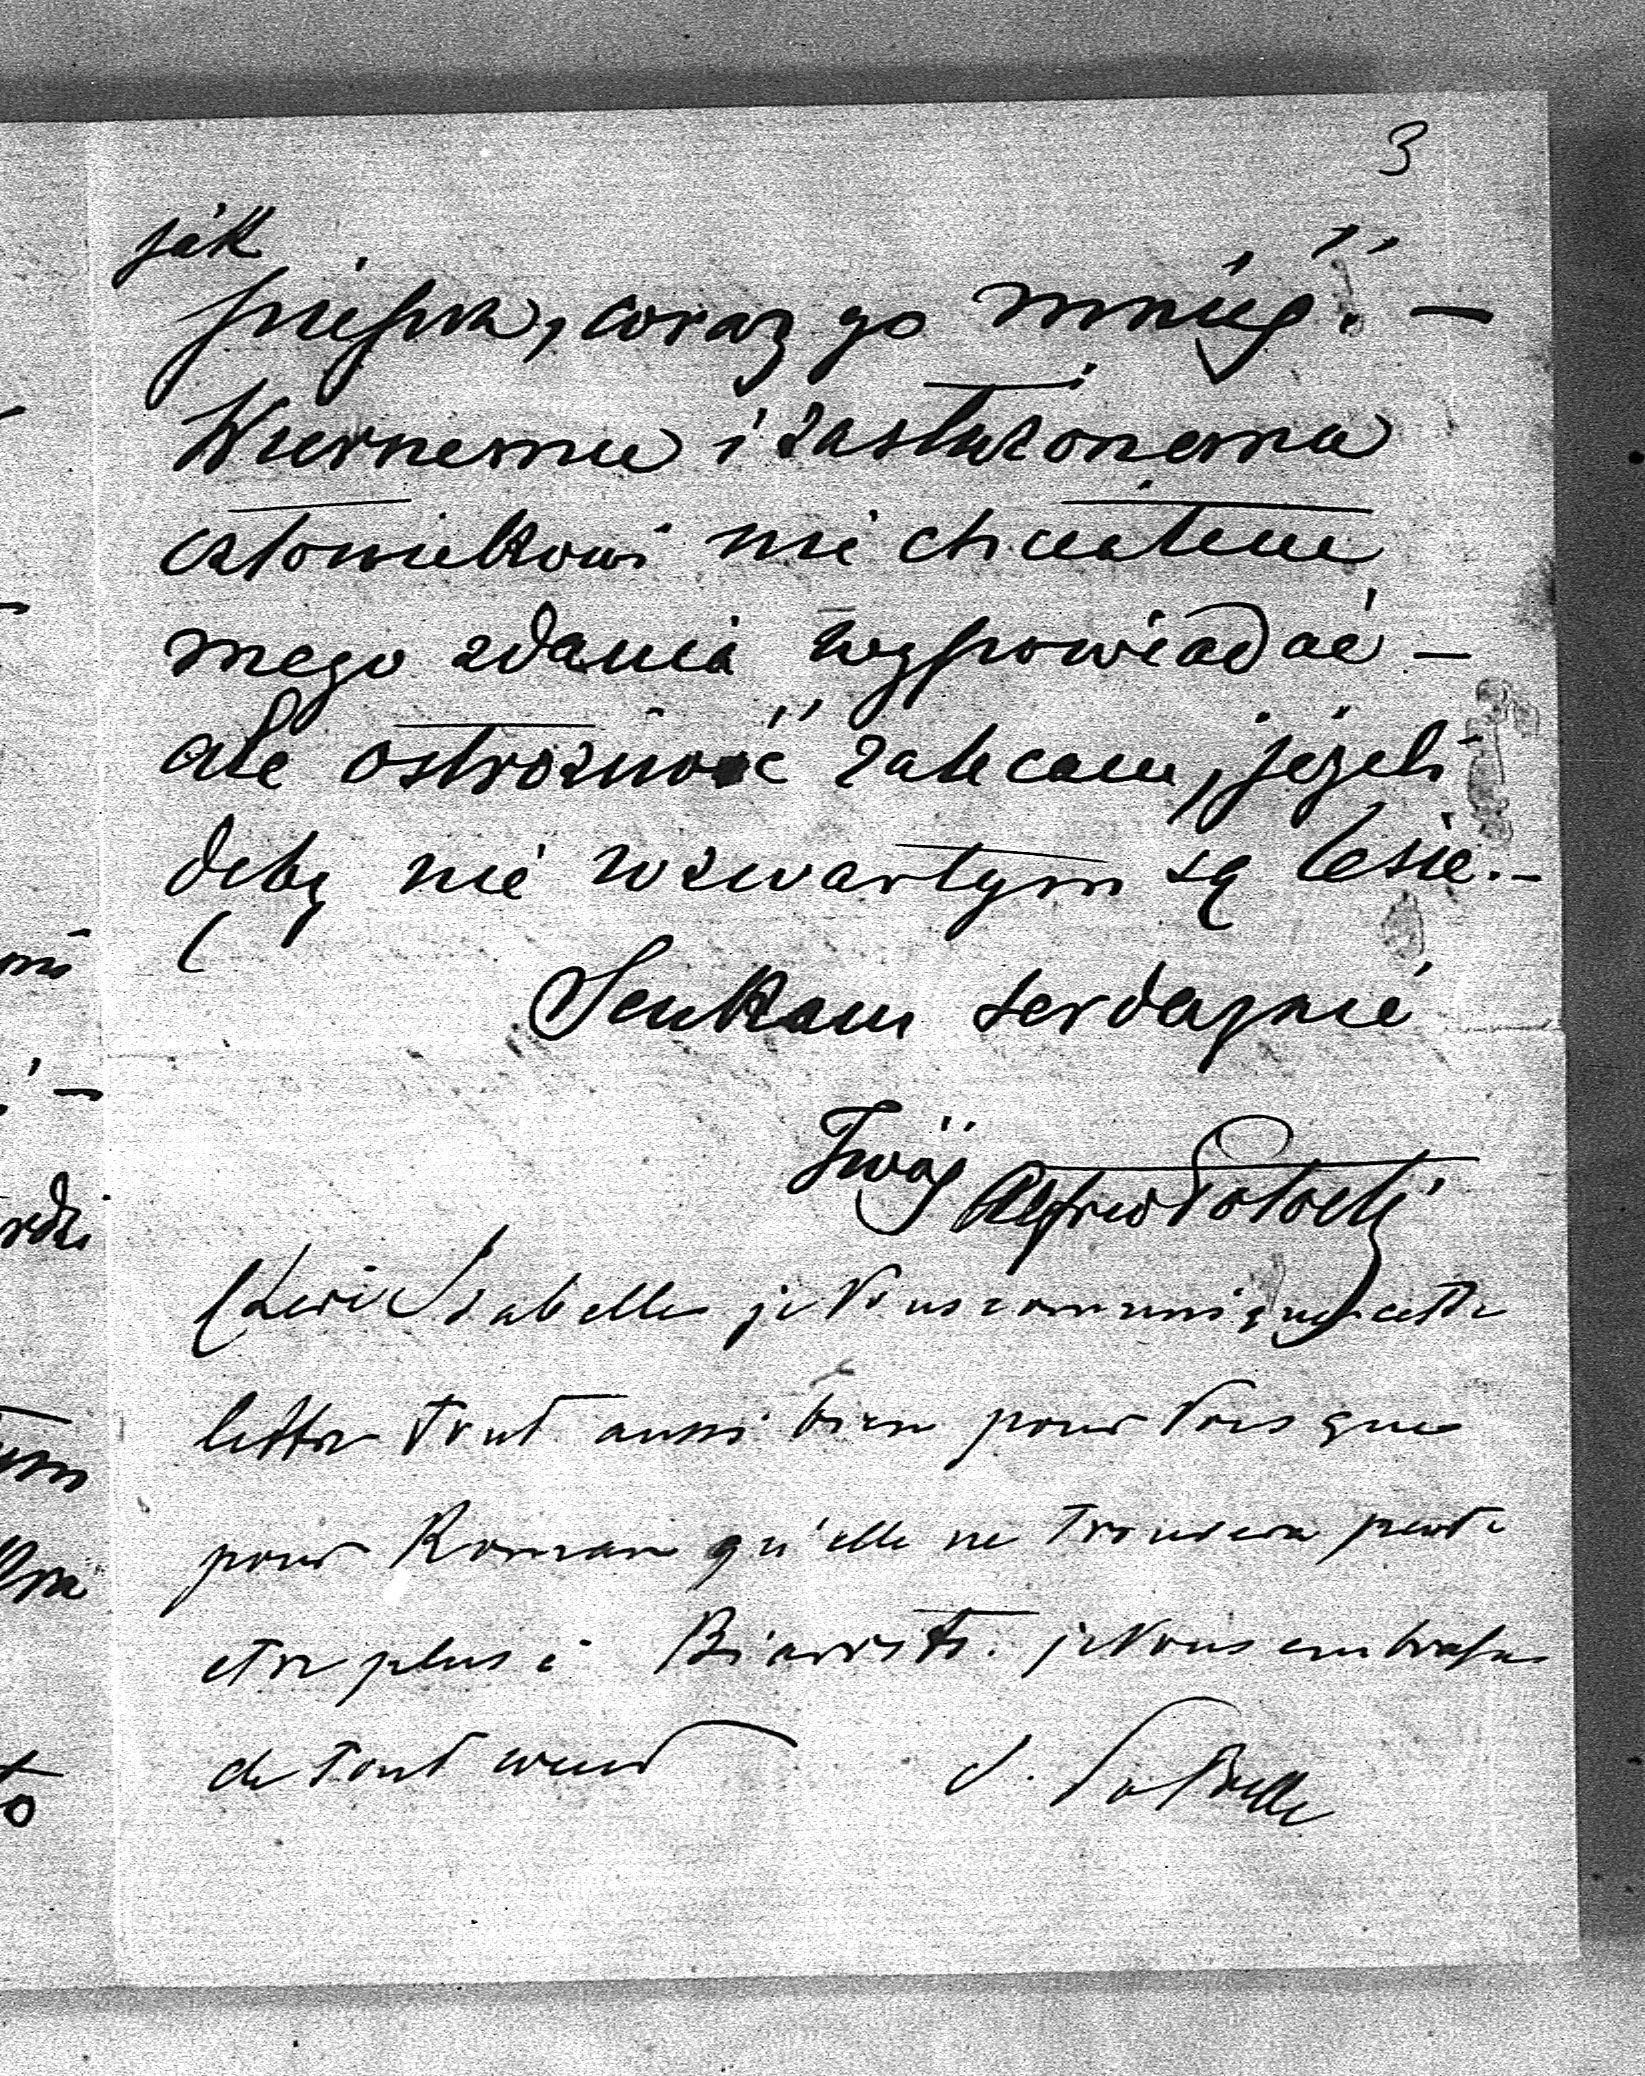 3
jak
pieprza, coraz go mniéj. —
Wiernemu i zasłużonemu
człowiekowi nie chciałem
mego zdania wypowiadać —
ale ostrożność zalecam, jeżeli
dęby nie w zwartym są lesie. —
Ściskam serdecznie
Twój Alfred Potocki
Chère Isabelle je Vous communique cette
lettre tout aussi bien pour Vous que
pour Roman qu'elle ne trouvera peut
etre plus à Biarritz. je Vous embrasse
de tout coeur